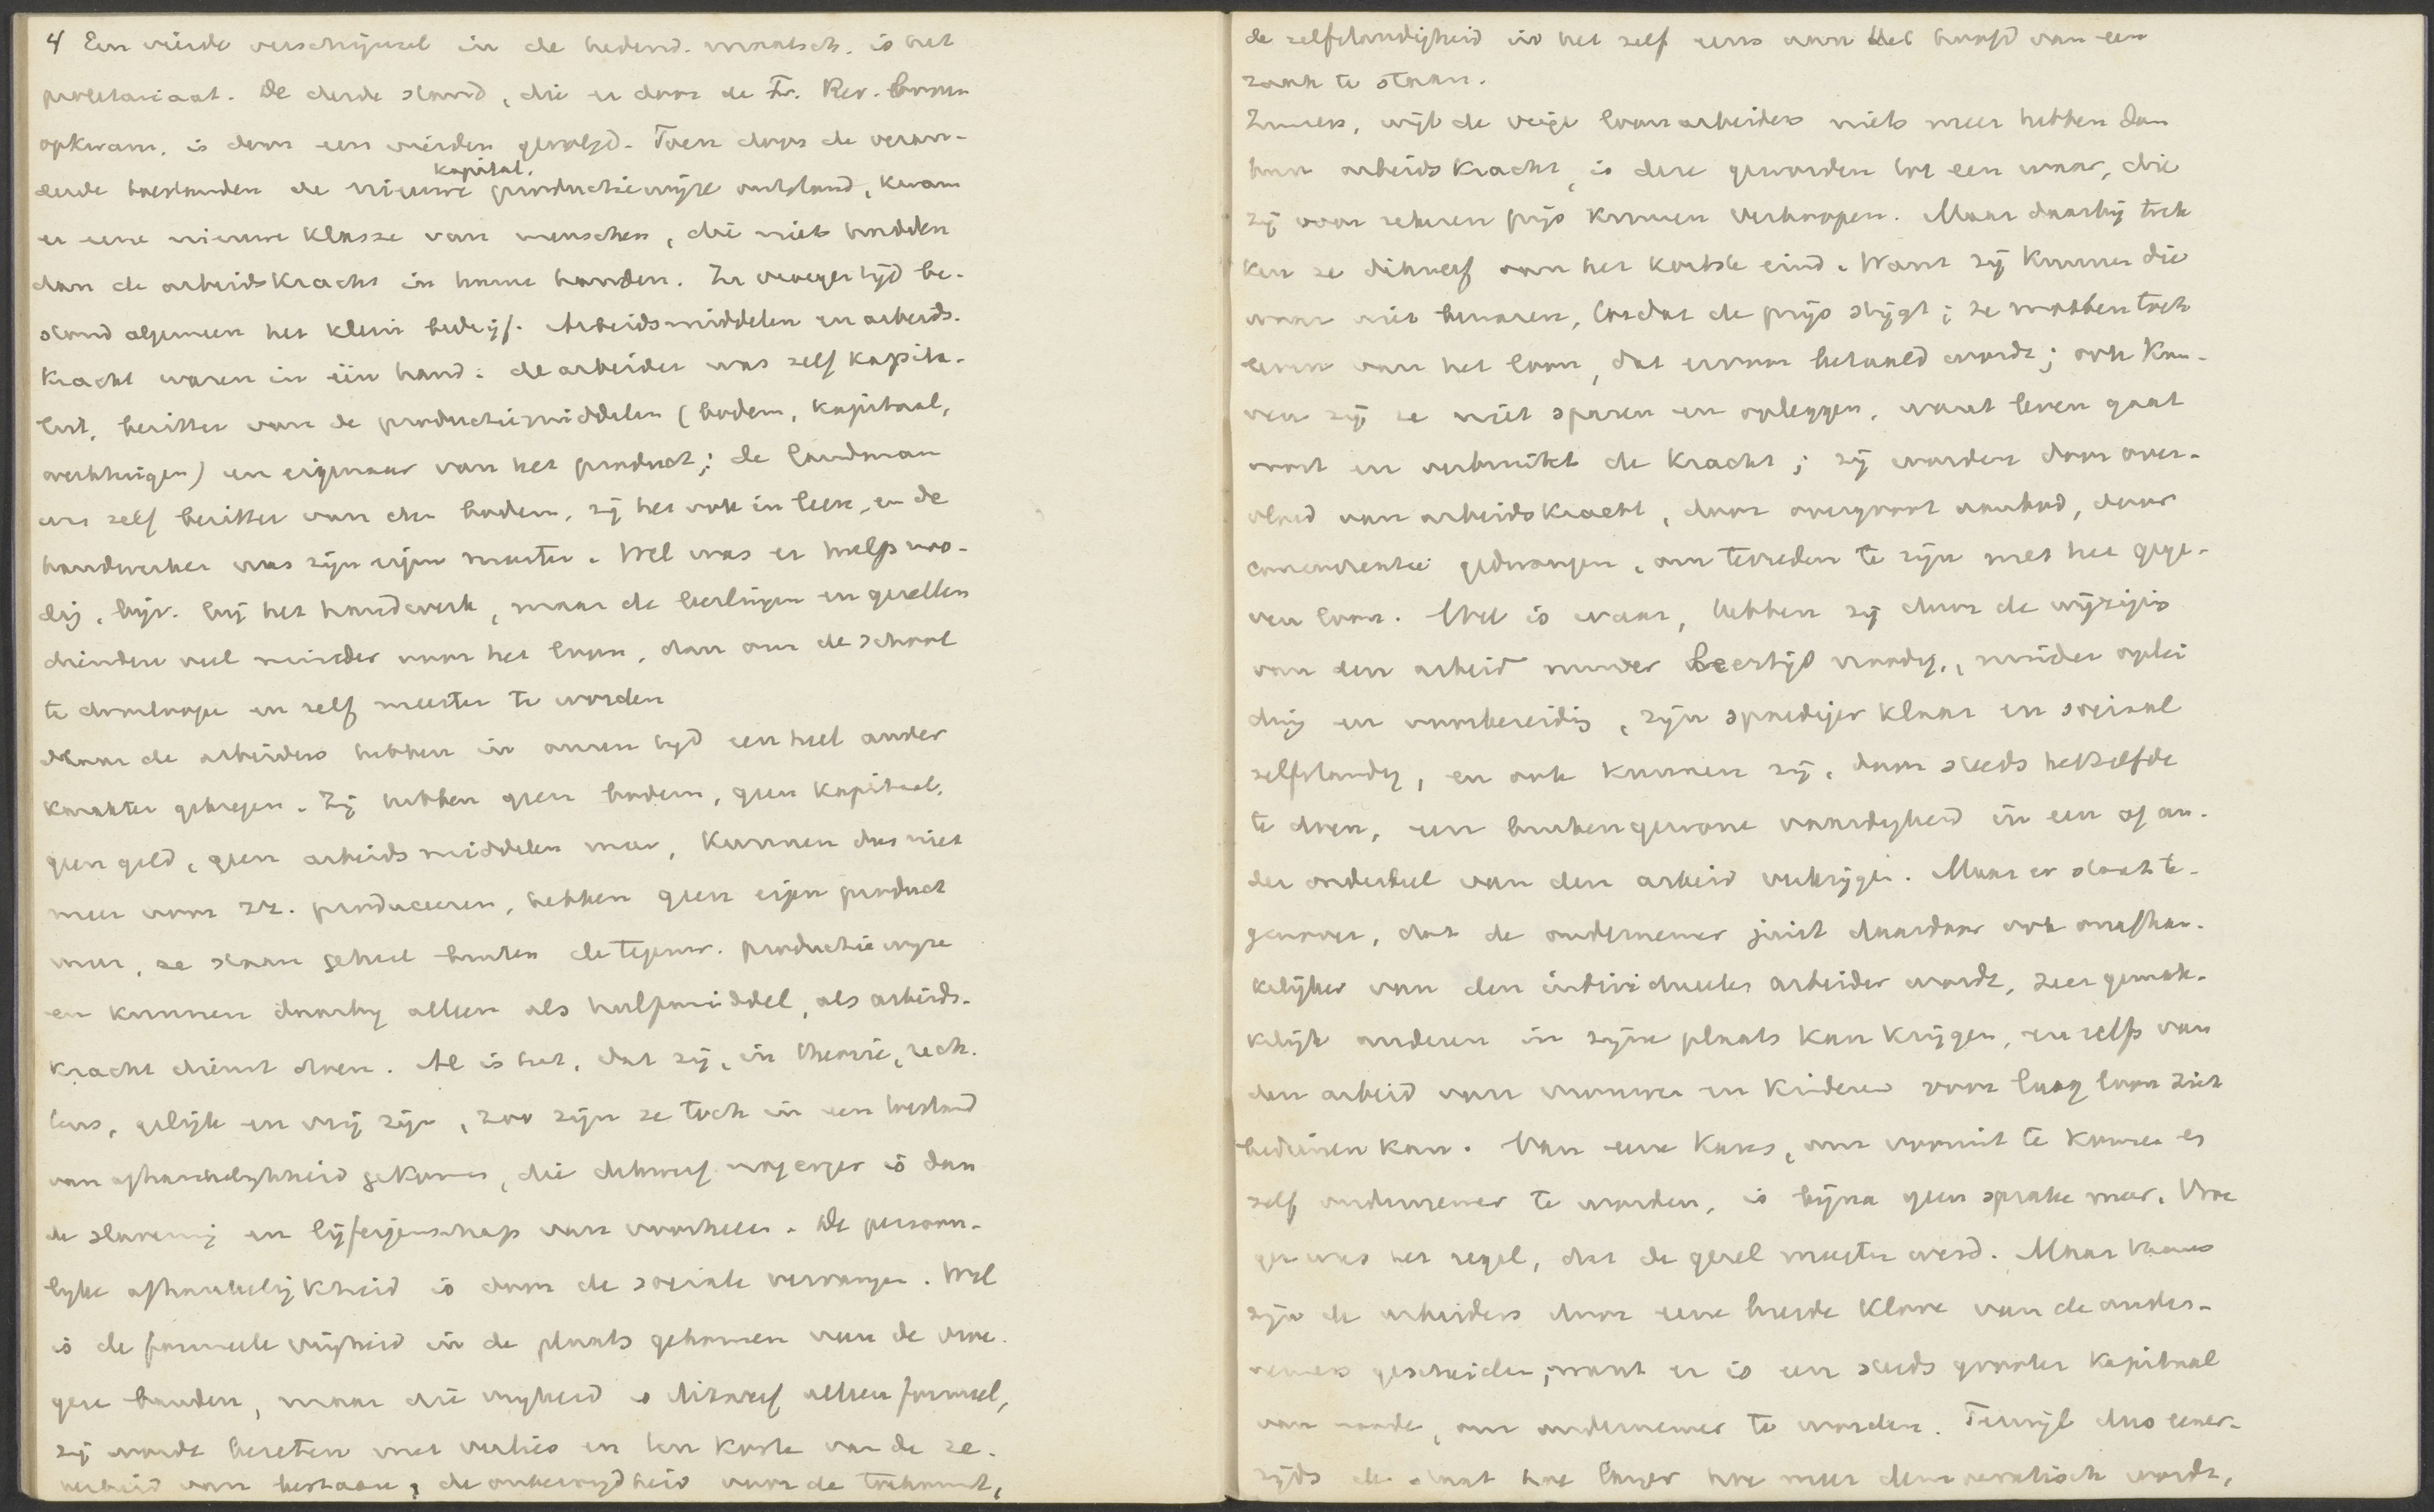 4 Een vierde verschijnsel in de hedend. maatsch. is het
proletariaat. De derde stand, die er door de Fr. Rev. boven
opkwam, is door een vierden gevolgd. Toen door de veran-
kapital.
derde toestanden de nieuwe productiewijze ontstond, kwam
er eene nieuwe klasse van menschen, die niets hadden
dan de arbeidskracht in hunne handen. In vroeger tijd be-
stond algemeen het klein bedrijf. Arbeidsmiddelen en arbeids-
kracht waren in één hand: de arbeider was zelf kapita-
list, bezitter van de productiemiddelen (bodem, kapitaal,
werktuigen) en eigenaar van het product; de landman
was zelf bezitter van den bodem, zij het ook in leen, en de
handwerker was zijn eigen meester. Wel was er hulp noo-
dig, bijv. bij het handwerk, maar de leerlingen en gezellen
dienden veel minder voor het loon, dan om de school
te doorloopen en zelf meester te worden
Maar de arbeiders hebben in onzen tijd een heel ander
karakter gekregen. Zij hebben geen bodem, geen kapitaal,
geen geld, geen arbeidsmiddelen meer, kunnen dus niet
meer voor zz. produceeren, hebben geen eigen product
meer, ze staan geheel buiten de tegenw. productiewijze
en kunnen daarbij alleen als hulpmiddel, als arbeids-
kracht dienst doen. Al is het, dat zij, in theorie, rech-
tens, gelijk en vrij zijn, zoo zijn ze toch in een toestand
van afhankelijkheid gekomen, die dikwerf nog erger is dan
de slavernij en lijfeigenschap van voorheen. De persoon-
lijke afhankelijkheid is door de sociale vervangen. Wel
is de formeele vrijheid in de plaats gekomen van de vroe-
gere banden, maar die vrijheid is dikwerf alleen formeel,
zij wordt betaald met verlies en ten koste van de ze-
kerheid van bestaan, de onbezorgdheid voor de toekomst,
de zelfstandigheid in het zelf eens aan het hoofd van een
zaak te staan.
Immers, wijl de vrije loonarbeiders niets meer hebben dan
hun arbeidskracht, is deze geworden tot een waar, die
zij voor zekeren prijs kunnen verkoopen. Maar daarbij trek
ken ze dikwerf aan het kortste eind. Want zij kunnen die
waar niet bewaren, totdat de prijs stijgt; ze moeten toch
leven van het loon, dat ervoor betaald wordt; ook kun-
nen zij ze niet sparen en opleggen, want leven gaat
voort en verbruikt de kracht; zij worden door over-
vloed van arbeidskracht, door overgroot aanbod, door
concurrentie gedwongen, om tevreden te zijn met het gege-
ven loon. Wel is waar, hebben zij door de wijziging
van den arbeid minder leertijd noodig, minder oplei
ding en voorbereiding, zijn spoediger klaar en sociaal
zelfstandig, en ook kunnen zij, door steeds hetzelfde
te doen, een buitengewone vaardigheid in een of an-
der onderdeel van den arbeid verkrijgen. Maar er staat te-
genover, dat de ondernemer juist daardoor ook onafhan-
kelijker van den individueelen arbeider wordt, zeer gemak-
kelijk anderen in zijne plaats kan krijgen, en zelfs van
den arbeid van vrouwen en kinderen voor laag loon zich
bedienen kan. Van eene kans, om vooruit te komen en
zelf ondernemer te worden, is bijna geen sprake meer. Vroe
ger was het regel, dat de gezel meester werd. Maar thans
zijn de arbeiders door eene breede klove van de onder-
nemers gescheiden; want er is een steeds grooter kapitaal
van noode, om ondernemer te worden. Terwijl dus eener-
zijds de staat hoe langer hoe meer democratisch wordt,